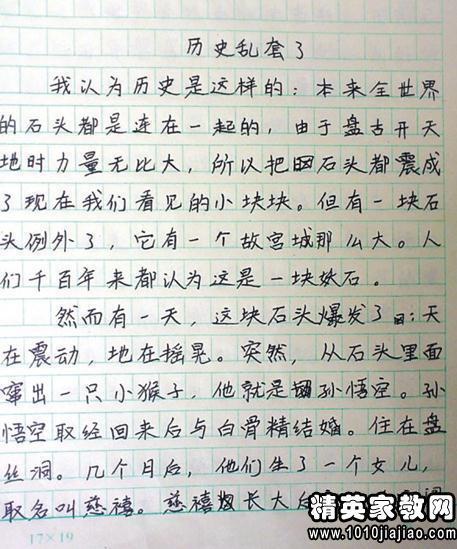 历史乱套了
我认为历史是这样的：本来全世界
的石头都是连在一起的，由于盘古开天
地时力量无比大，所以把石头都震成
了现在我们看见的小块块。但有一块石
头例外了，它有一个故宫城那么大。人
们千百年来都认为这是一块妖石。
然而有一天，这块石头爆发了：天
在震动，地在摇晃。突然，从石头里面
窜出一只小猴子，他就是孙悟空。孙
悟空取经回来后与白骨精结婚。住在盘
丝洞。几个月后，他们生了一个女儿，
取名叫慈禧。慈禧长大
17×19
精英家教网
www.1010jiajiao.com